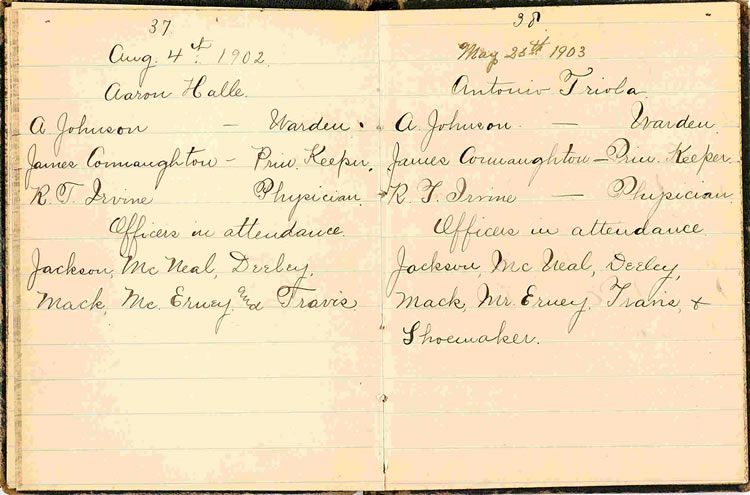 37
Aug. 4th. 1902.
Aaron Halle.
A Johnson — Warden.
James Connaughton - Prin. Keeper.
R. T. Irvine Physician.
Officers in attendance.
Jackson, Mc Neal, Deeley,
Mack, Mc. Erney. and Travis
38
May 25th 1903
Antonio Triola
A. Johnson. — Warden.
James Connaughton - Prin. Keeper.
R. T. Irvine — Physician.
Officers in attendance.
Jackson, Mc Neal, Deeley,
Mack, Mr. Erney. Travis, &
Shoemaker.